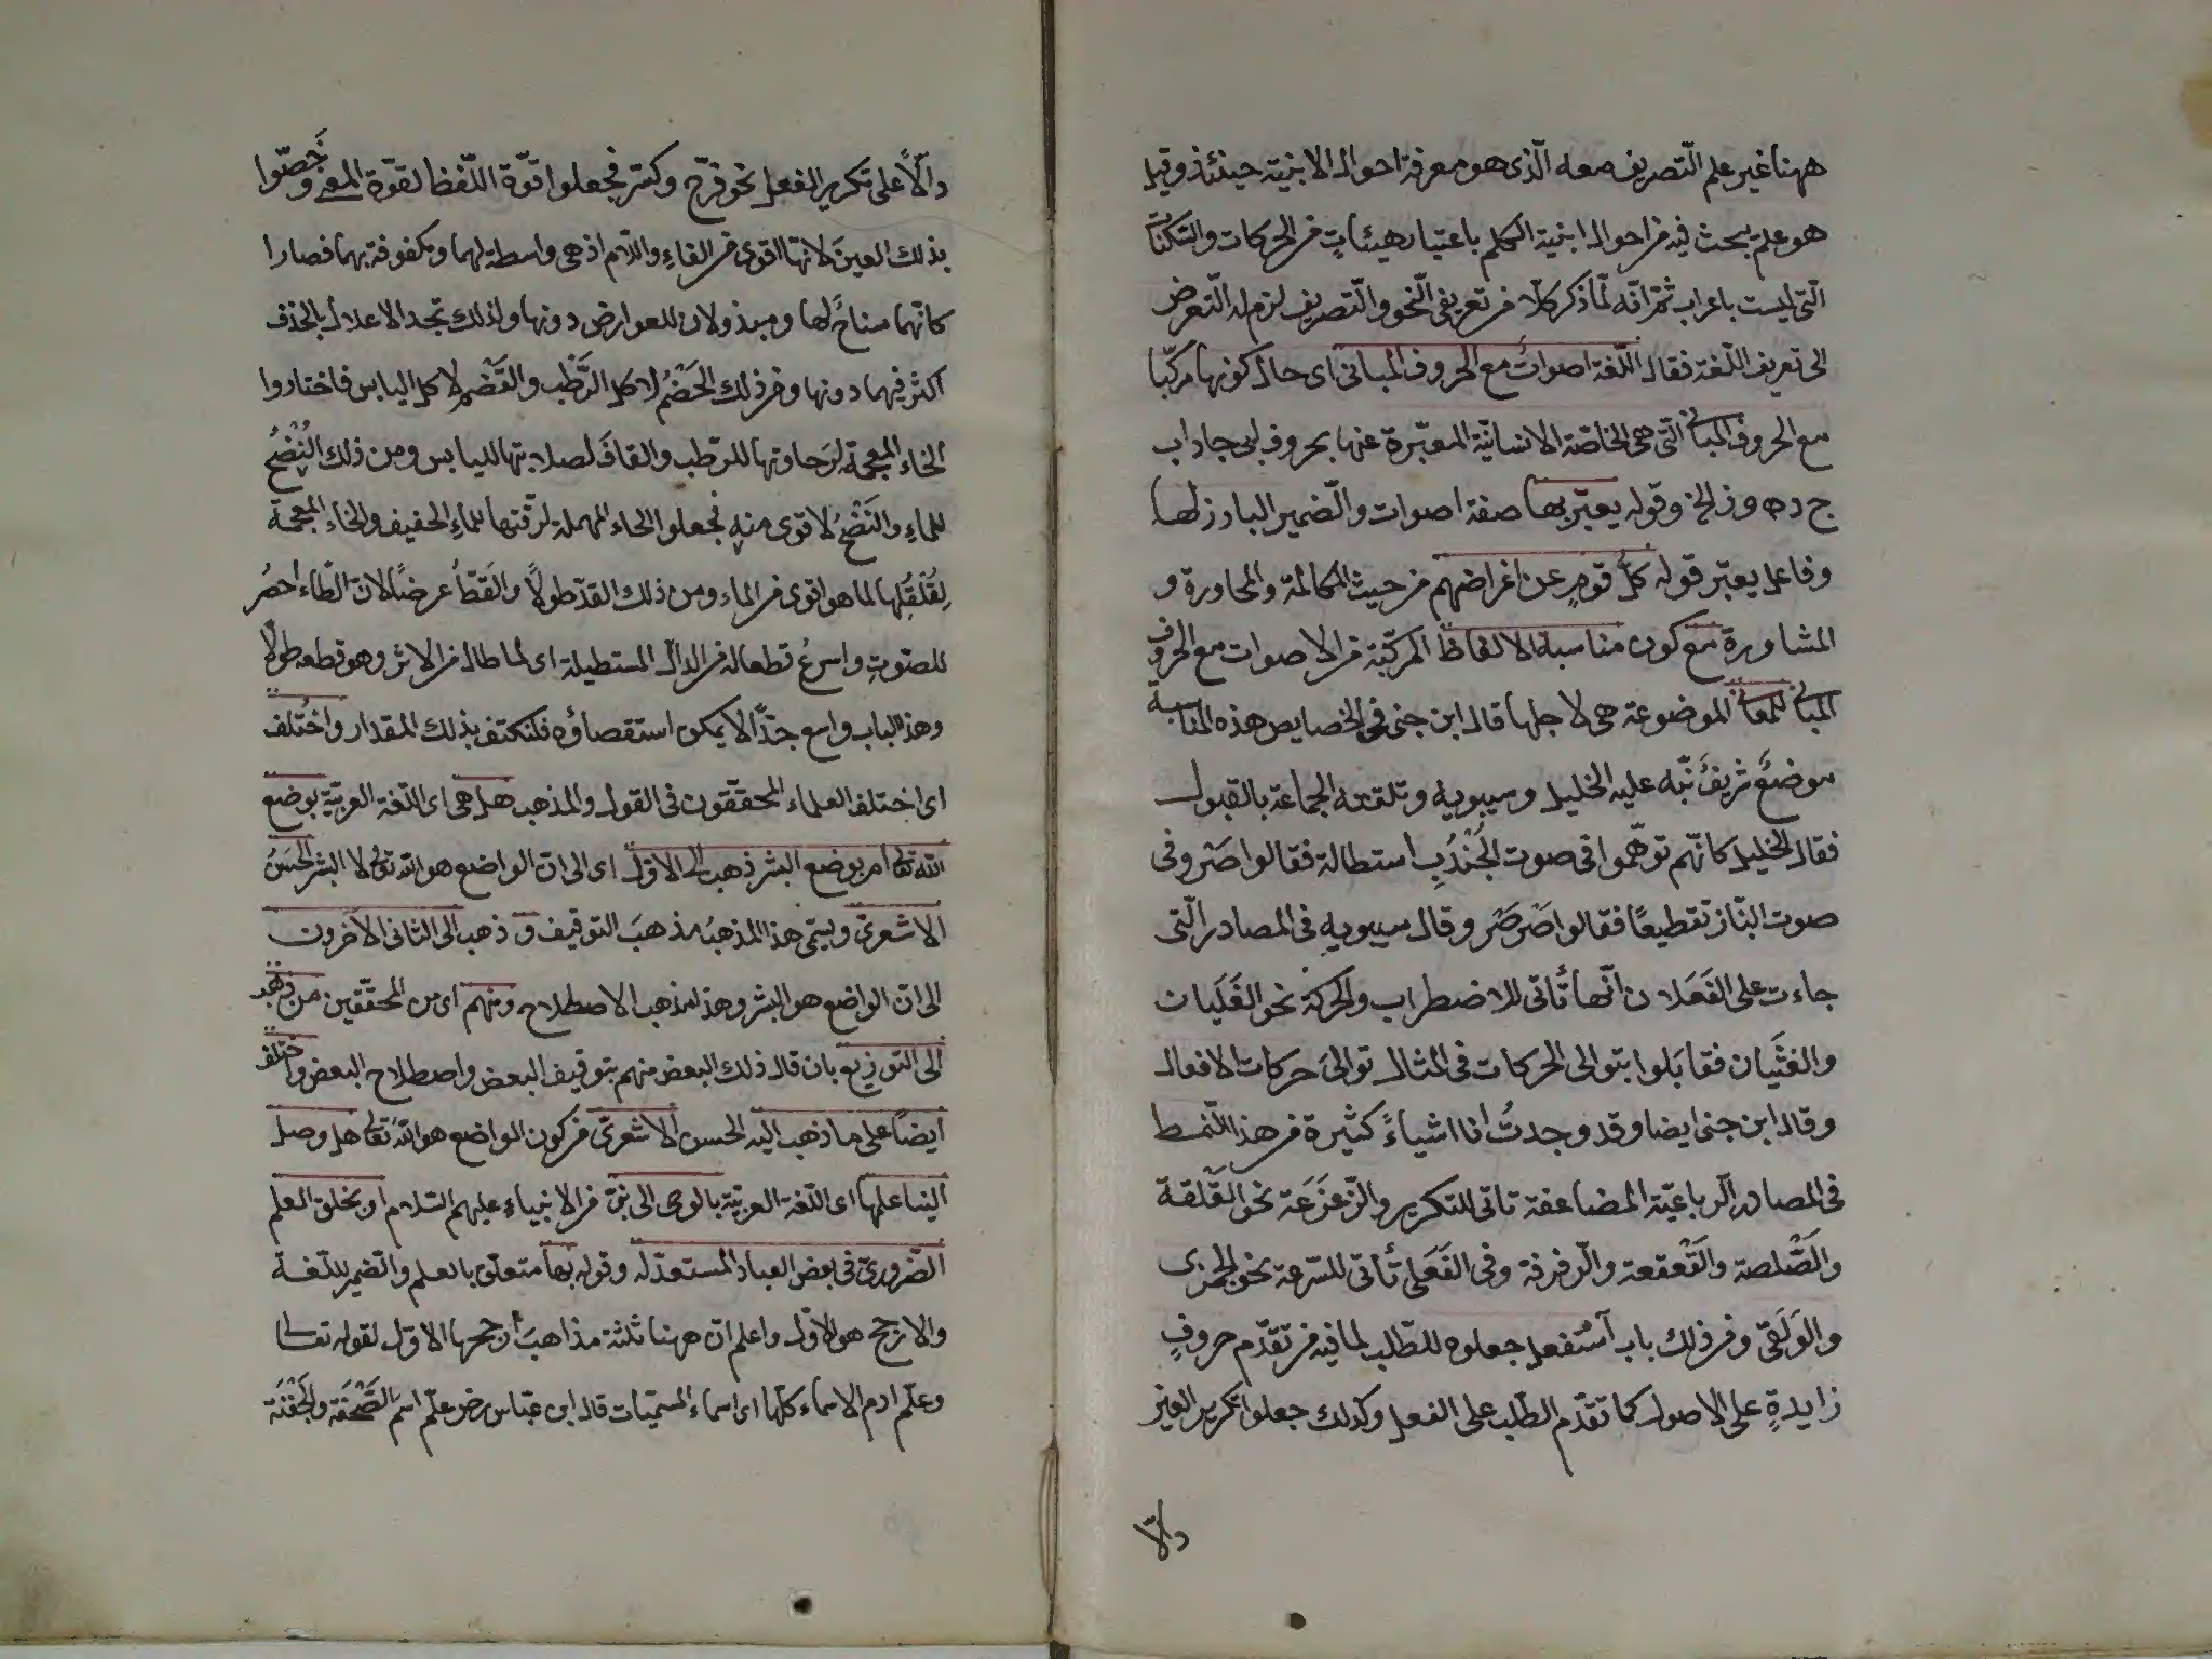 ههنا غير علم التصريف معه الذى هو معرفة احوال الابنية حينئذ وقيل
هو علم يبحث فيه من احوال ابنية الكلم باعتبار هيئاتٍ من الحركات والسكنات
التى ليست باعراب ثمّ انّه لمّا ذكر كلّا من تعريفى النحو والتصريف لزم له التعرض
الى تعريف اللّغة فقال اللّغة اصواتٌ مع الحروف المبانى اى حال كونها مركّبا
مع الحروف المبانى الّتى هى الخاصّة الانسانيّة المعبّرة عنها بحروف اب
ج د ه و ز الخ وقوله يعبّر بها صفة اصوات والضّمير البارز لها
وفاعل يعبّر قوله كلّ قومٍ عن اغراضهم من حيث المكالمة والمحاورة و
المشاورة مع كون مناسبة الالفاظ المركّبة من الاصوات مع الحروف
المبانى للمعانى الموضوعة هى لاجلها قال ابن جنى فى الخصايص هذه المناسبة
موضعٌ شريفٌ نبّه عليه الخليل وسيبويه وتلقته الجماعة بالقبول
فقال الخليل كانّهم توهّموا فى صوت الجُنْدُبِ استطالة فقالوا صَرّ وفى
صوت البّاز تقطيعًا فقالوا صَرصَر وقال سيبويه فى المصادر الّتى
جاءت على الفَعَلان انّها تأتى للاضطراب والحركة نحو الغَلَيان
والغثَيان فقابَلوا بتوالى الحركات فى المثال توالىَ حركات الافعال
وقال ابن جنى ايضا وقد وجدتُ انا اشياءً كثيرة من هذا النّمط
فى المصادر الرباعيّة المضاعفة تاتى للتكرير والزّعزَعَة نحو القَلقة
والصَّلصة والقَعْقعة والرّفرفة وفى الفَعَلى تأتى للسّرعة نحو الجمزى
والوَلَقىّ ومن ذلك باب اَستفعل جعلوه للطّلب لما فيه من تقدّم حروفٍ
زايدةٍ على الاصول كما تقدّم الطّلب على الفعل وكذلك جعلوا تكرير العين
دالّا
دالّاً على تكرير الفعل نحو فرّح وكسّر فجعلوا قوّة اللّفظ لقوّة المعنى وخَصّوا
بذلك العينَ لانّها اقوى من الفاءِ واللّام اذ هى واسطة لهما ومكفوفة بهما فصارا
كانّهما سناجٌ لها ومبذولان للعوارض دونها ولذلك تجد الاعلال بالحذف
اكثر فيهما دونها ومن ذلك الخَضْمُ لاكل الرَّطْب والقَضْم لاكل اليابس فاختاروا
الخاء المعجمة لرَخاوتها للرّطب والقافَ لصلابتها لليابس ومن ذلك النُضْحُ
للماءِ والنَضْخُ لاقوى منه فجعلوا الحاء المهملة لرقّتها للماءِ الخفيف والخاء المعجمة
لها لما هو اقوى من الماء ومن ذلك القدّ طولًا والقَطّ عرضًا لانّ الطّاء احصرُ
للصّوتِ واسرعُ قطعا له من الدالّ المستطيلة اى لما طال من الاثر وهو قطعه طولًا
وهذا الباب واسع جدًّا لا يمكن استقصاؤه فلنكتف بذلك المقدار واختُلف
اى اختلف العلماء المحققون فى القول والمذهب هل هى اى اللّغة العربيّة بوضع
الله تعالى ام بوضع البشر ذهب الى الاوّل اى الى انّ الواضع هو الله تعالى لا البشر الحَسَنُ
الاشعرىّ ويسمّى هذا المذهبُ مذهبَ التوقيف و ذهب الى الثانى الآخرون
الى انّ الواضع هو البشر وهذا مذهب الاصطلاح ومنهم اى من المحققين من ذهب
الى التوزيع بان قال ذلك البعض منهم بتوقيف البعض واصطلاح البعض واختلف
ايضًا على ما ذهب اليه الحسن الاشعرىّ من كون الواضع هو الله تعالى هل وصل
الينا علمها اى اللّغة العربيّة بالوحى الى نبىّ من الانبياء عليهم السّلام او بخلق العلم
الضّرورىّ فى بعض العباد المستعدّ له وقوله بها متعلّق بالعلم والضّمير للّغة
والارجح هو الاوّل واعلم انّ ههنا ثلثة مذاهبَ ارجحها الاوّل لقوله تعالى
وعلّم ادم الاسماء كلّها اى اسماء المسمّيات قال ابن عبّاس رض علّم اسمَ الصَّحْفَة والجَفْنَة